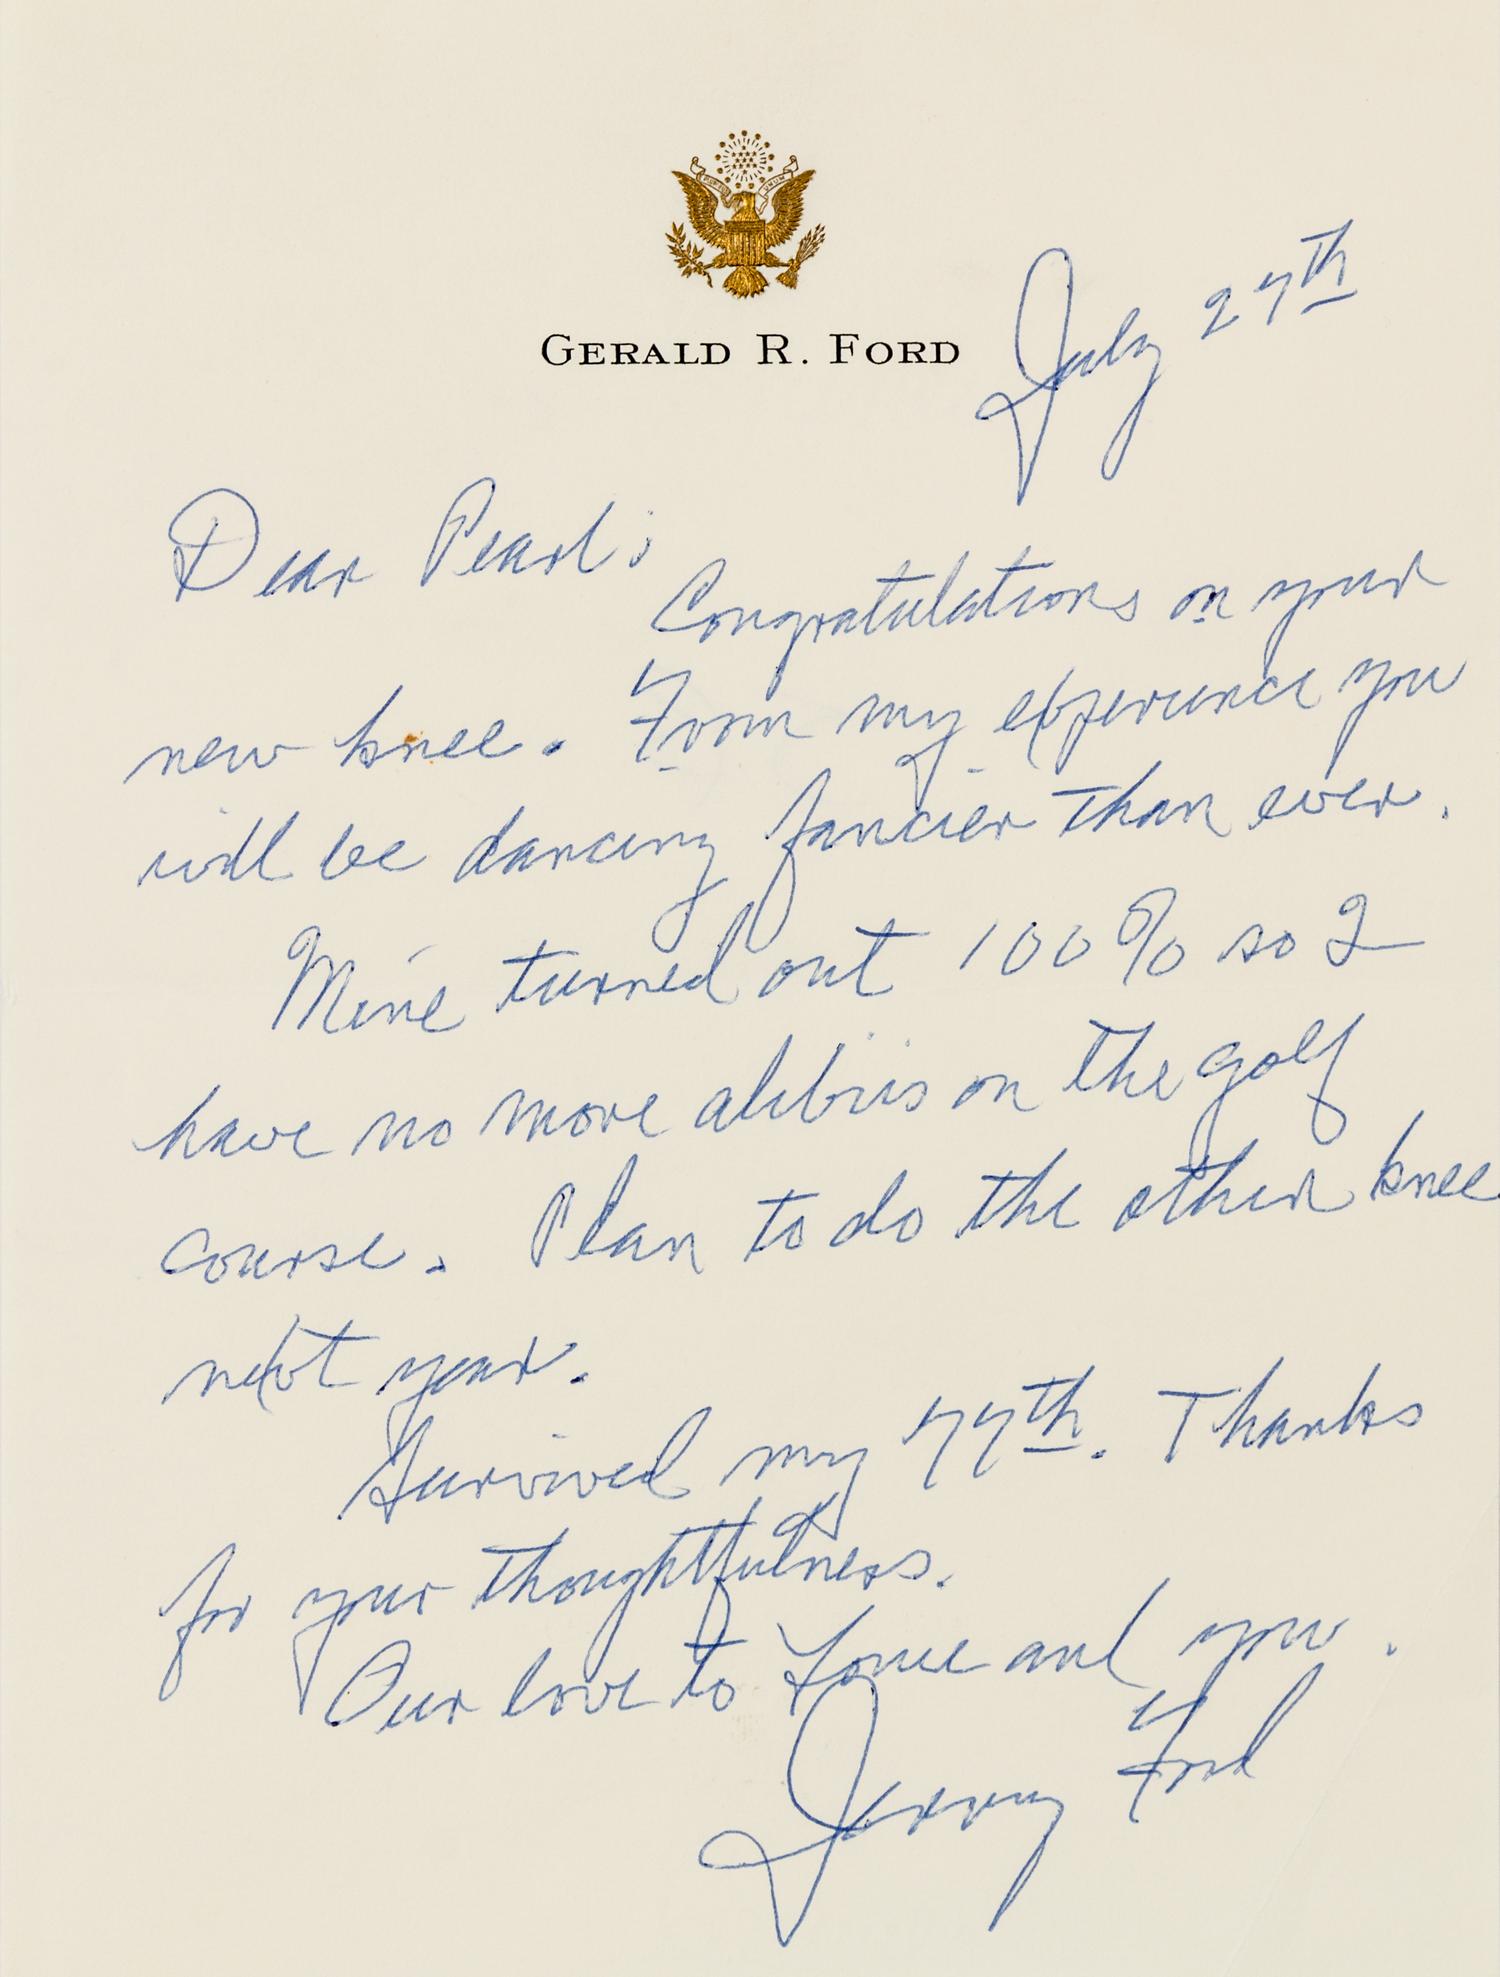 GERALD R. FORD
July 27th
Dear Pearl:
Congratulations on your
new knee. From my experience you
will be dancing fancier than ever.
Mine turned out 100% so I
have no more alibiis on the golf
course. Plan to do the other knee
next year.
Survived my 77th. Thanks
for your thoughtfulness.
Our love to Louie and you.
Jerry Ford